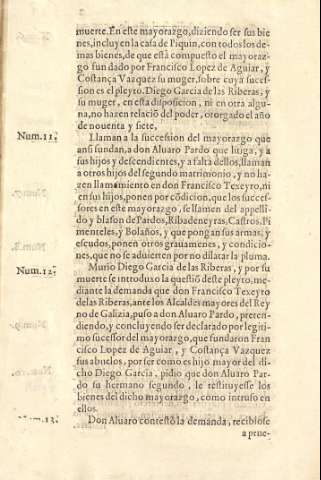 muerte. En este mayorazgo, diziendo ser sus bie
nes, incluyen la casa de Piquin, con todos los de-
mas bienes, de que està compuesto el mayoraz-
go fundado por Francisco Lopez de Aguiar, y
Costança Vazquez su muger, sobre cuya succes-
sion es el pleyto. Diego Garcia de las Riberas, y
su muger, en esta disposicion, ni en otra algu-
na, no hazen relaciõ del poder, otorgado el año
de nouenta y siete,
Num. 11. Llaman a la succession del mayorazgo que
ansi fundan, a don Aluaro Pardo que litiga, y a
sus hijos y descendientes, y a falta dellos, llaman
a otros hijos del segundo matrimonio, y no ha-
zen llamamiento en don Francisco Texeyro, ni
en sus hijos, ponen por cõdicion, que los succes-
sores en este mayorazgo, se llamen del appelli-
do y blason de Pardos, Ribadeneyras, Castros, Pi
menteles, y Bolaños, y que pongan sus armas, y
escudos, ponen otros grauamenes, y condicio-
nes, que no se aduierten por no dilatar la pluma.
Num. 12. Murio Diego Garcia de las Riberas, y por su
muerte se introduxo la questiõ deste pleyto, me-
diante la demanda que don Francisco Texeyro
de las Riberas, ante los Alcaldes mayores del Rey
no de Galizia, puso a don Aluaro Pardo, preten-
diendo, y concluyendo ser declarado por legiti-
mo sucessor del mayorazgo, que fundaron Fran
cisco Lopez de Aguiar, y Costança Vazquez
sus abuelos, por ser como es hijo mayor del di-
cho Diego Garcia, pidio que don Aluaro Par-
do su hermano segundo, le restituyesse los
bienes del dicho mayorazgo, como intruso en
ellos.
Num. 13. Don Aluaro contestò la demanda, recibiose
a prue-